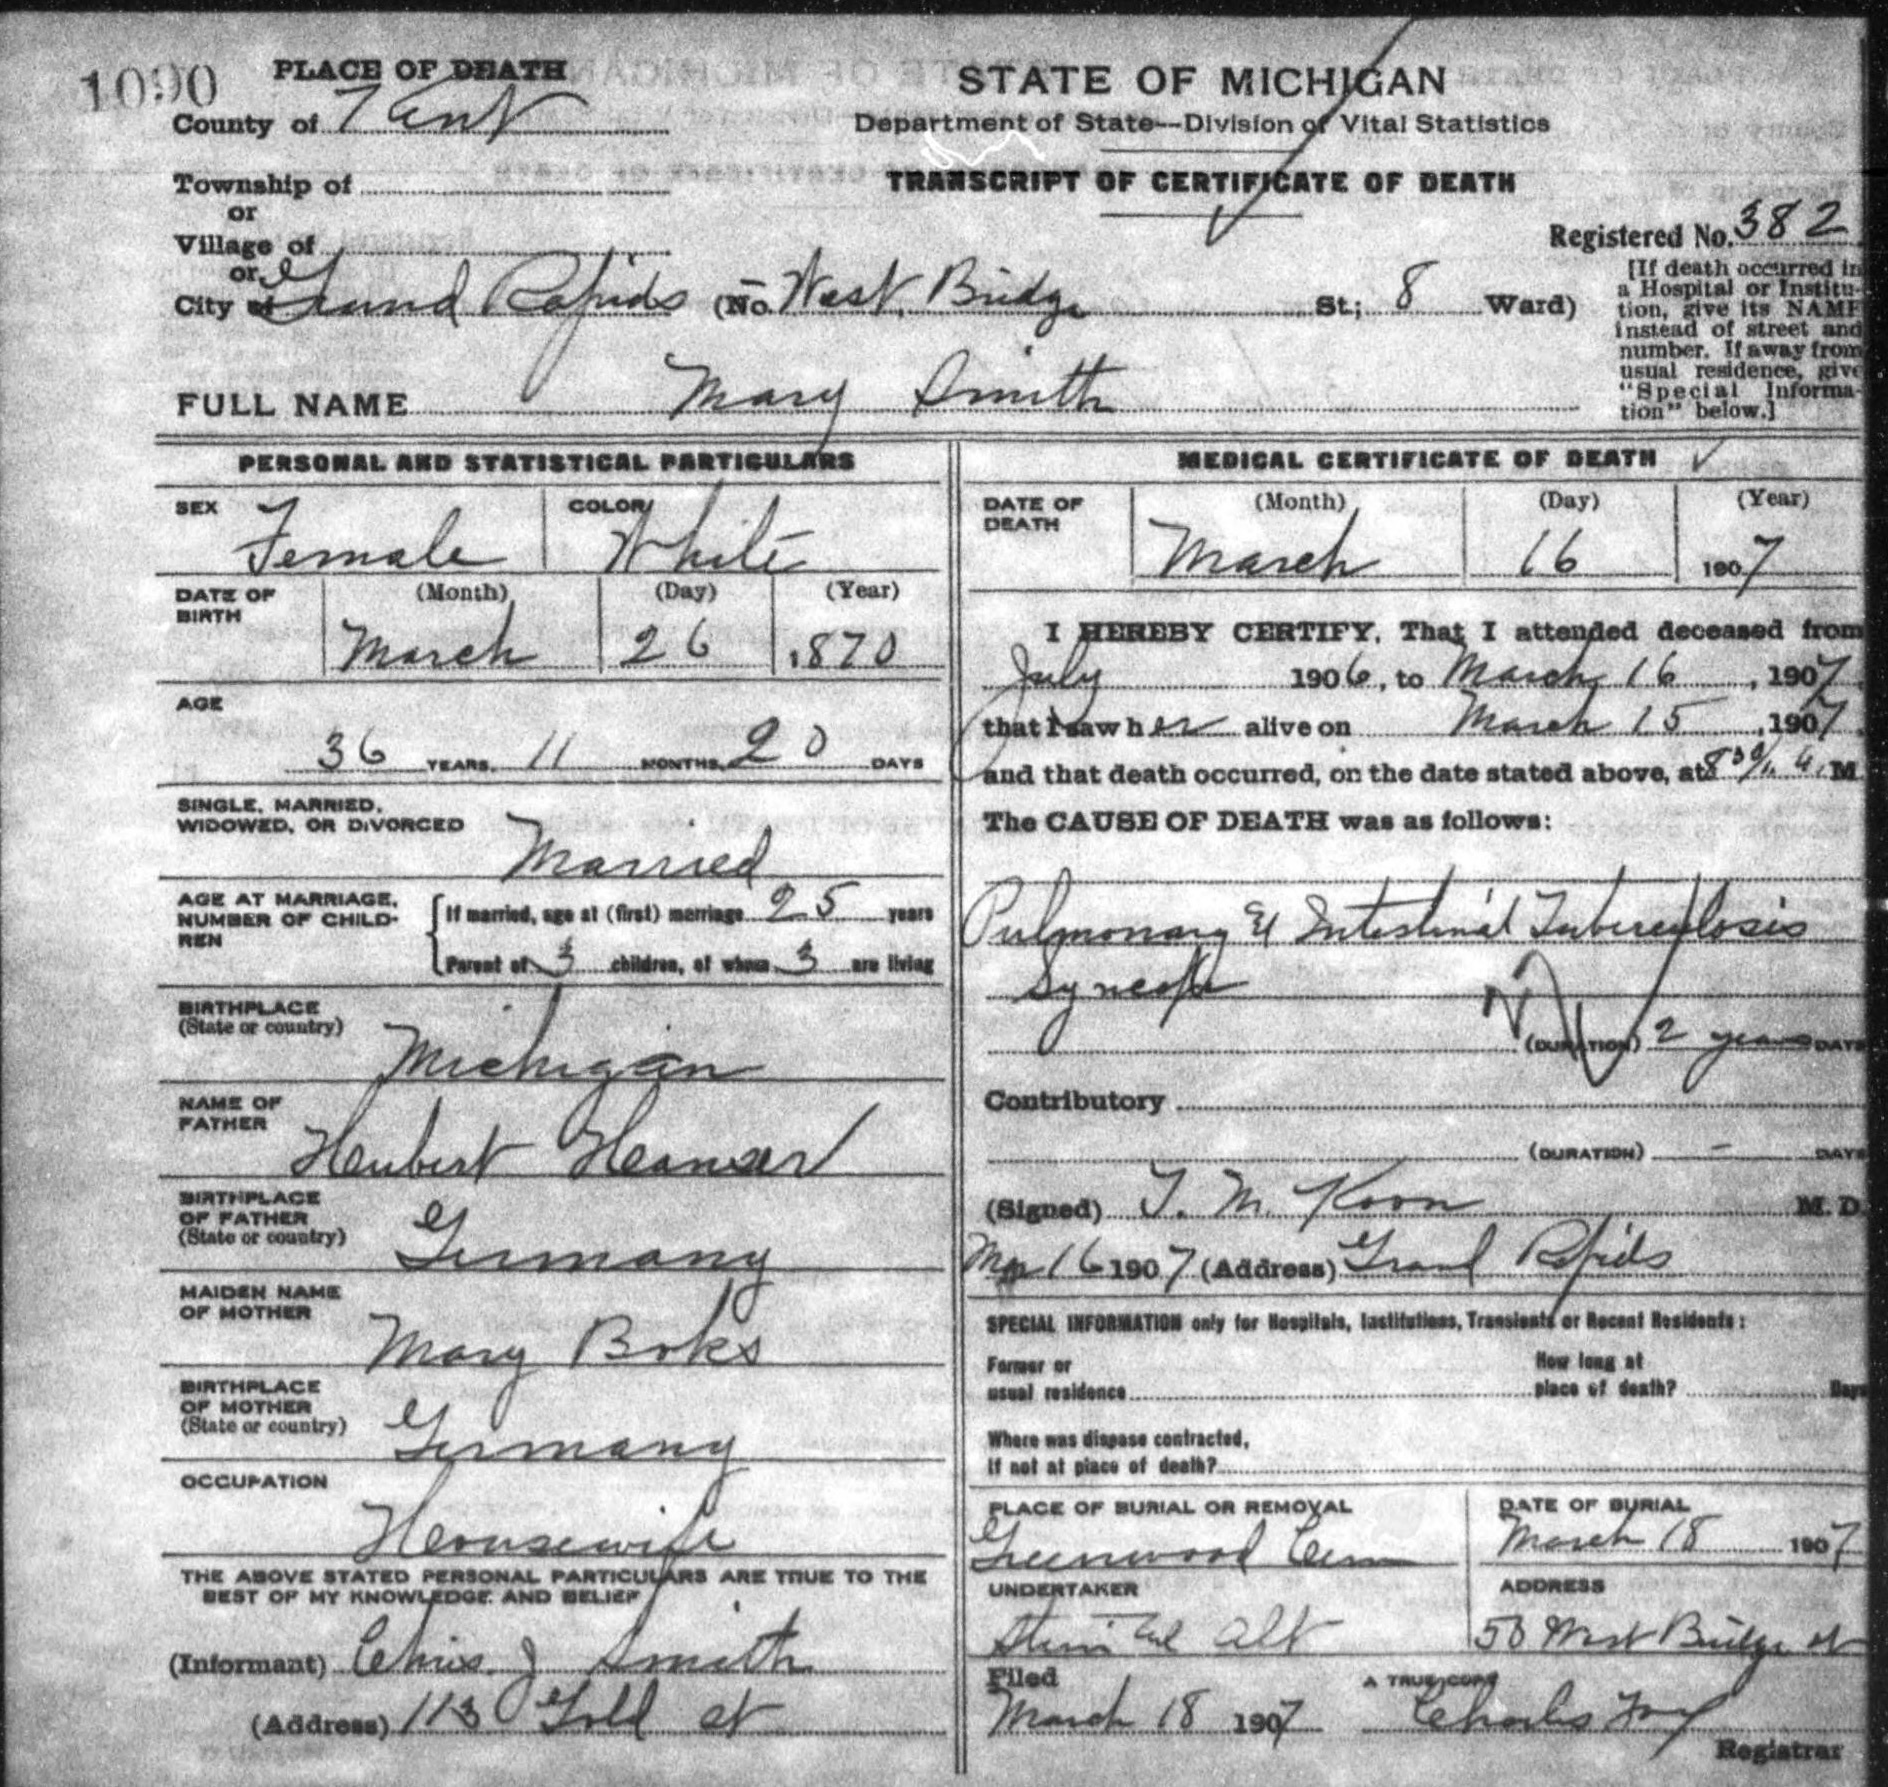 1090
PLACE OF DEATH
County of Kent
Township of
or
Village of
or
City of Grand Rapids (No. West Bridge St; 8 Ward)
STATE OF MICHIGAN
Department of State—Division of Vital Statistics
TRANSCRIPT OF CERTIFICATE OF DEATH
Registered No. 382
[If death occurred in
a Hospital or Institu-
tion, give its NAME
instead of street and
number. If away from
usual residence, give
"Special Informa-
tion" below.]
FULL NAME Mary Smith
PERSONAL AND STATISTICAL PARTICULARS
SEX Female COLOR White
DATE OF BIRTH (Month) March (Day) 26 (Year) 1870
AGE
36 YEARS, 11 MONTHS, 20 DAYS
SINGLE, MARRIED,
WIDOWED, OR DIVORCED Married
AGE AT MARRIAGE,
NUMBER OF CHILD-
REN
If married, age at (first) marriage 25 years
Parent of 3 children, of whom 3 are living
BIRTHPLACE
(State or country) Michigan
NAME OF
FATHER Hubert
BIRTHPLACE
OF FATHER
(State or country) Germany
MAIDEN NAME
OF MOTHER Mary Boks
BIRTHPLACE
OF MOTHER
(State or country) Germany
OCCUPATION
Housewife
THE ABOVE STATED PERSONAL PARTICULARS ARE TRUE TO THE
BEST OF MY KNOWLEDGE AND BELIEF
(Informant) Chris. J Smith
(Address) 113 Gold st
MEDICAL CERTIFICATE OF DEATH
DATE OF DEATH (Month) March (Day) 16 (Year) 1907
I HEREBY CERTIFY, That I attended deceased from
July 1906, to March 16, 1907,
that I saw her alive on March 15, 1907,
and that death occurred, on the date stated above, at 8 30 a. M
The CAUSE OF DEATH was as follows:
Pulmonary & Intestinal Tuberculosis
Syncope
(DURATION) 2 years DAYS
Contributory
(DURATION) - DAYS
(Signed) T. M. Koon M. D.
Mar 16 1907 (Address) Grand Rapids
SPECIAL INFORMATION only for Hospitals, Institutions, Transients or Recent Residents:
Former or
usual residence
How long at
place of death? Days
Where was disease contracted,
If not at place of death?
PLACE OF BURIAL OR REMOVAL
Greenwood Cem
DATE OF BURIAL
March 18 1907
UNDERTAKER
Alt
ADDRESS
50 West Bridge st
Filed
March 18 1907
A TRUE COPY
Charles
Registrar